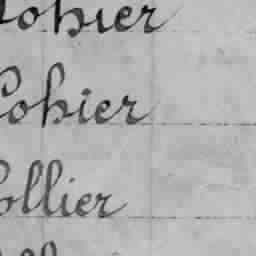 Cohier
Cohier
Collier